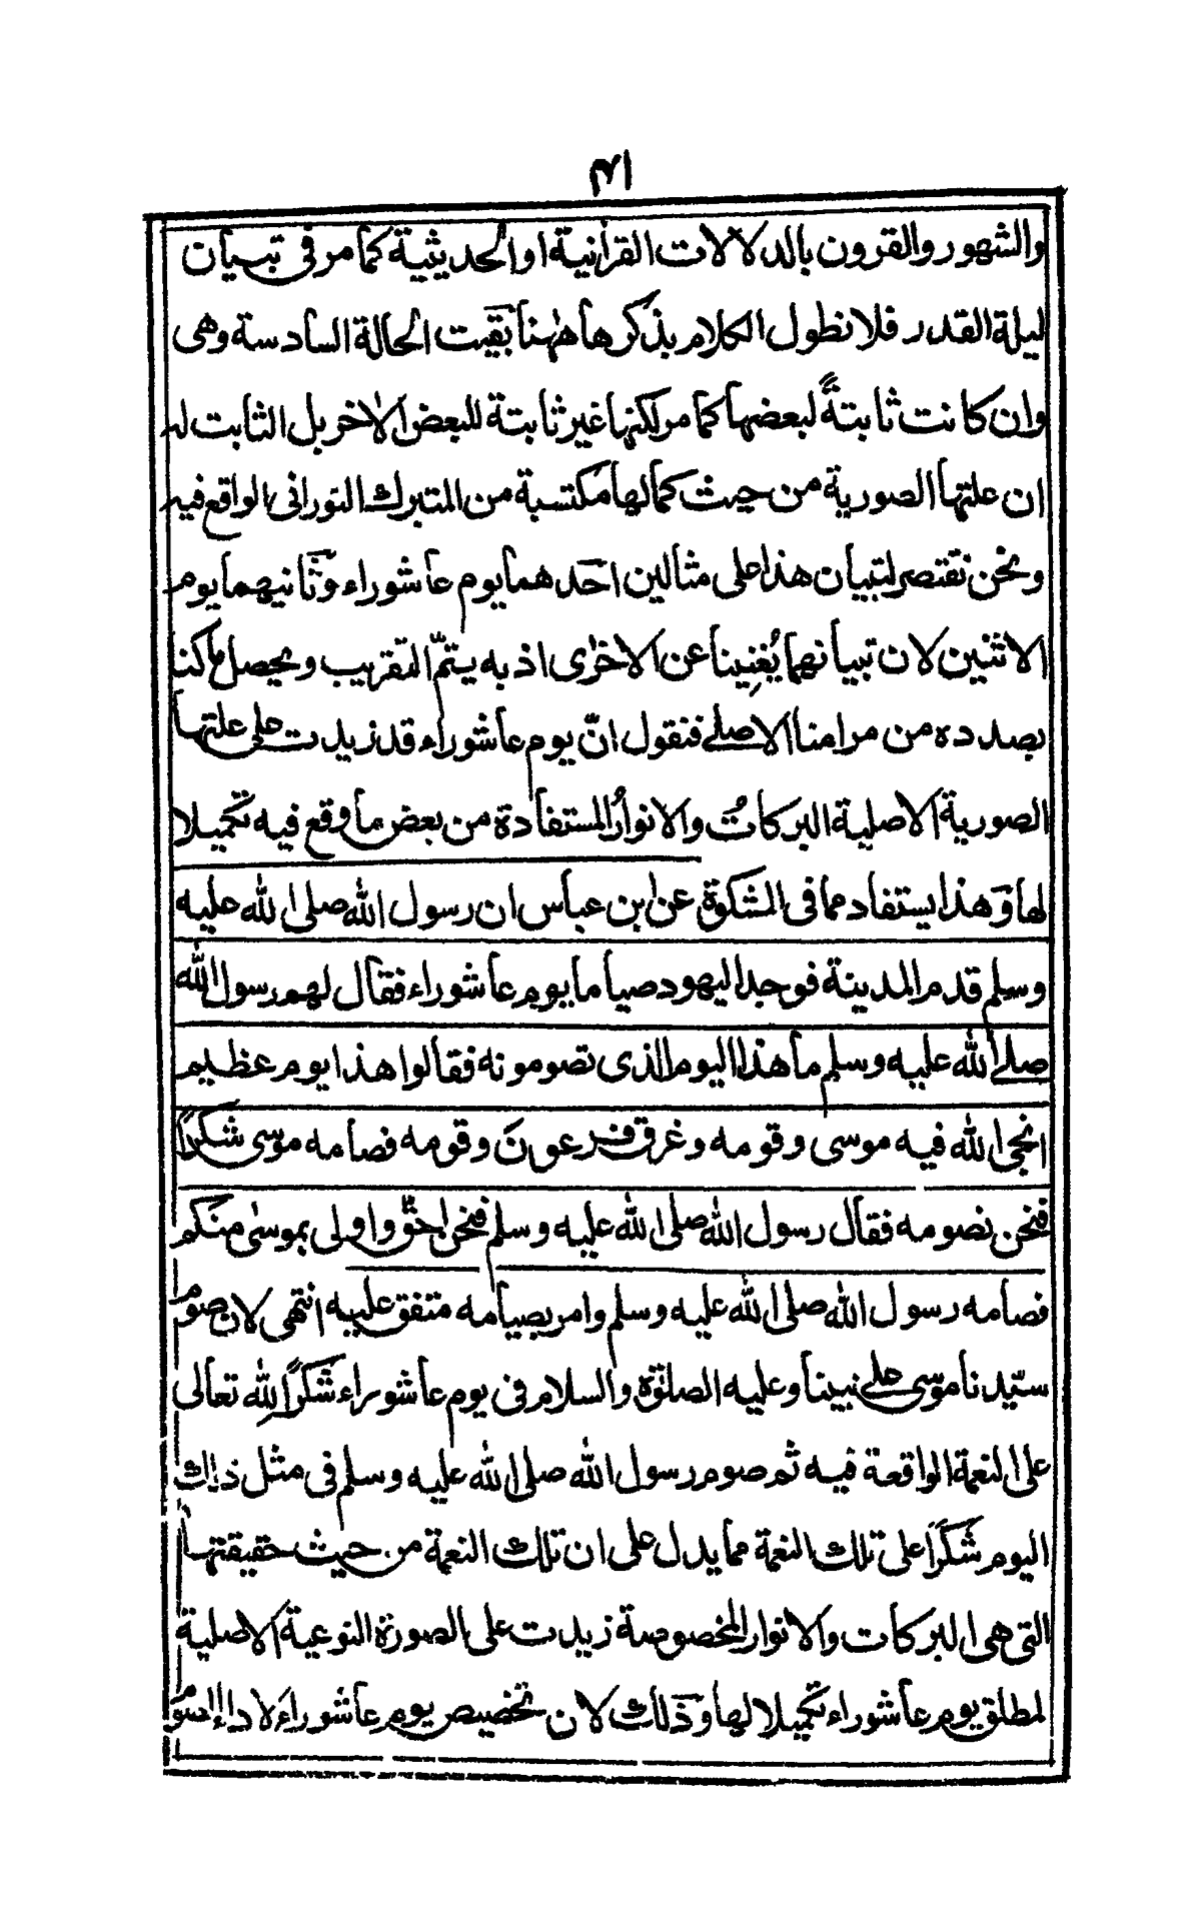 ٣١
والشهور والقرون بالدلالات القرآنية او الحديثية كما مر فى تبيان
ليلة القدر فلا نطول الكلام بذكرها ههنا بقيت الحالة السادسة وهى
وان كانت ثابتةً لبعضها كما مر لكنها غير ثابتة للبعض الاخر بل الثابت له
ان علتها الصورية من حيث كمالها مكتسبة من المتبرك النورانى الواقع فيه
ونحن نقتصر لتبيان هذا على مثالين احدهما يوم عاشوراء وثانيهما يوم
الاثنين لان تبيانهما يُغنِينا عن الاخرى اذ به يتمّ التقريب ويحصل ما كنا
بصدده من مرامنا الاصلے فنقول انّ يوم عاشوراء قد زيدت على علتها
الصورية الاصلية البركاتُ والانوارُ المستفادة من بعض ما وقع فيه تكميلا
لها وَهذا يستفاد مما فى المشكوة عن ابن عباس ان رسول الله صلى الله عليه
وسلم قدم المدينة فوجد اليهود صياما يوم عاشوراء فقال لهم رسول الله
صلے الله عليه وسلم ما هذا اليوم الذى تصومونه فقالوا هذا يوم عظيم
انجى الله فيه موسى وقومه وغرق فرعونَ وقومه فصامه موسى شكرًا
فنحن نصومه فقال رسول الله صلى الله عليه وسلم فنحن احقّ واولى بموسى منكم
فصامه رسول الله صلى الله عليه وسلم وامر بصيامه متفق عليه انتهى لان صوم
سيّدنا موسى على نبينا وعليه الصلوٰة والسلام فى يوم عاشوراء شكرًا لِله تعالى
على النعمة الواقعة فيه ثم صوم رسول الله صلى الله عليه وسلم فى مثل ذلك
اليوم شكرًا على تلك النعمة مما يدل على ان تلك النعمة من حيث حقيقتها
التى هى البركات والانوار المخصوصة زيدت على الصورة النوعية الاصلية
لمطلق يوم عاشوراء تكميلا لها وَذلك لان تخصيص يوم عاشوراءَ لاداء